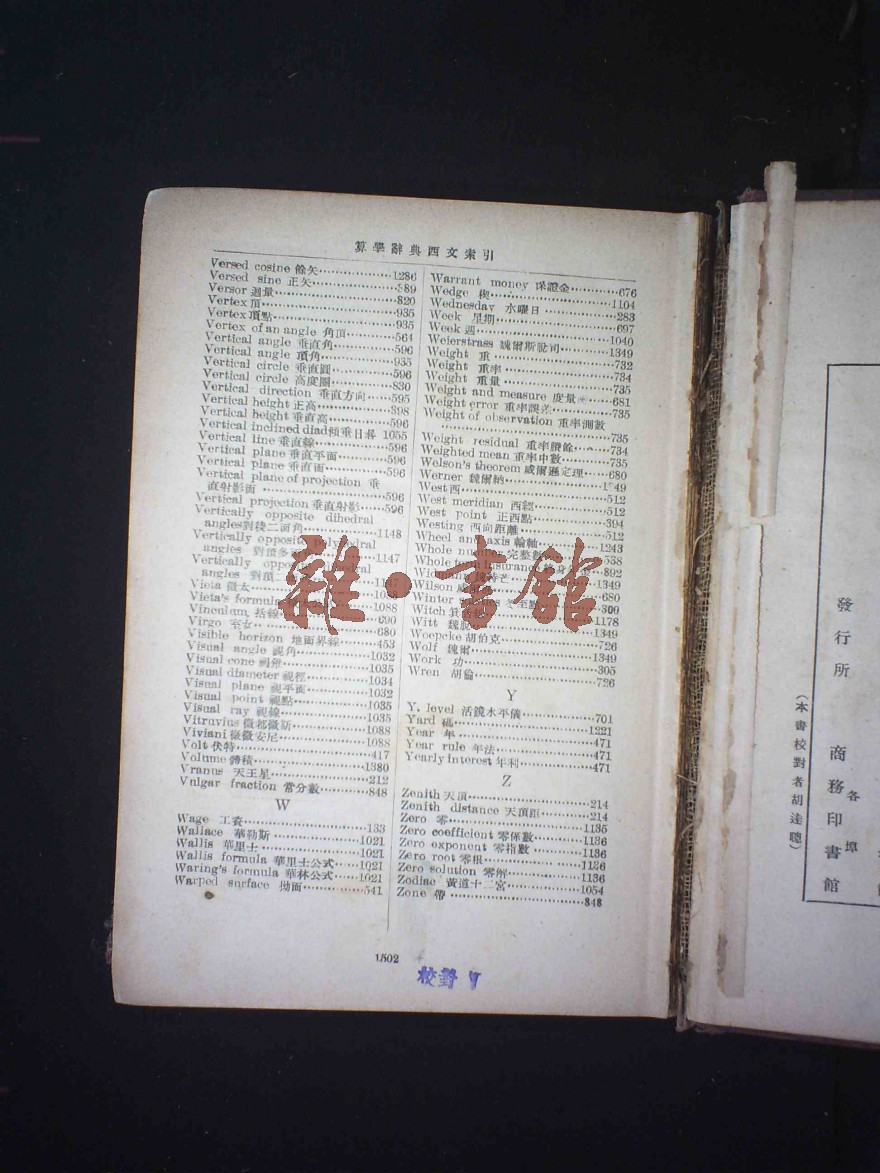 算學辭典西文索引
Versed cosine 餘矢……1286
Versed sine 正矢……589
Versor 迴量……820
Vertex 頂……935
Vertex 頂點……935
Vertex of an angle 角頂……564
Vertical angle 垂直角……596
Vertical angle 頂角……935
Vertical circle 垂直圓……596
Vertical circle 高度圈……830
Vertical direction 垂直方向……595
Vertical height 正高……398
Vertical height 垂直高……596
Vertical inclined diad 傾垂日晷 1055
Vertical line 垂直線……596
Vertical plane 垂直平面……596
Vertical plane 垂直面……596
Vertical plane of projection 垂
直射影面……596
Vertical projection 垂直射影……596
Vertically opposite dihedral
angles 對稜二面角……1148
Vertically opposite polyhedral
angles 對頂多……1147
Vertically opposite
angles 對頂二
Vieta 微太
Vieta's formula……1088
Vinculum 括線……690
Virgo 室女……680
Visible horizon 地面界線……453
Visual angle 視角……1032
Visual cone 視錐……1035
Visual diameter 視徑……1034
Visual plane 視平面……1032
Visual point 視點……1035
Visual ray 視線……1035
Vitruvius 微都微斯……1088
Viviani 微微安尼……1088
Volt 伏特……417
Volume 體積……1380
Vranus 天王星……212
Vulgar fraction 常分數……848
W
Wage 工資……133
Wallace 華勒斯……1021
Wallis 華里士……1021
Wallis formula 華里士公式……1021
Waring's formula 華林公式……1021
Warped surface 拗面……541
Warrant money 保證金……676
Wedge 楔……1104
Wednesday 水曜日……283
Week 星期……697
Week 週……1040
Weierstrass 魏爾斯脫司……1349
Weight 重……732
Weight 重率……734
Weight 重量……735
Weight and measure 度量……681
Weight error 重率誤差……735
Weight of observation 重率測數
……735
Weight residual 重率賸餘……734
Weighted mean 重率中數……735
Welson's theorem 威爾遜定理……680
Werner 魏爾納……1349
West 西……512
West meridian 西經……512
West point 正西點……394
Westing 西向距離……512
Wheel and axis 輪軸……1243
Whole number 完整數……538
Whole term insurance 終身……892
……1349
Wilson 威……680
Winter 冬至點……300
Witch 箕……1178
Witt 魏脫……1349
Woepcke 胡伯克……726
Wolf 魏爾……1349
Work 功……305
Wren 胡倫……726
Y
Y. level 活鏡水平儀……701
Yard 碼……1221
Year 年……471
Year rule 年法……471
Yearly interest 年利……471
Z
Zenith 天頂……214
Zenith distance 天頂距……214
Zero 零……1135
Zero coefficient 零係數……1136
Zero exponent 零指數……1136
Zero root 零根……1136
Zero solution 零解……1136
Zodiac 黃道十二宮……1054
Zone 帶……848
1502
校對
雜·書館
發行所
商務印書館
各埠
(本書校對者胡達聰)